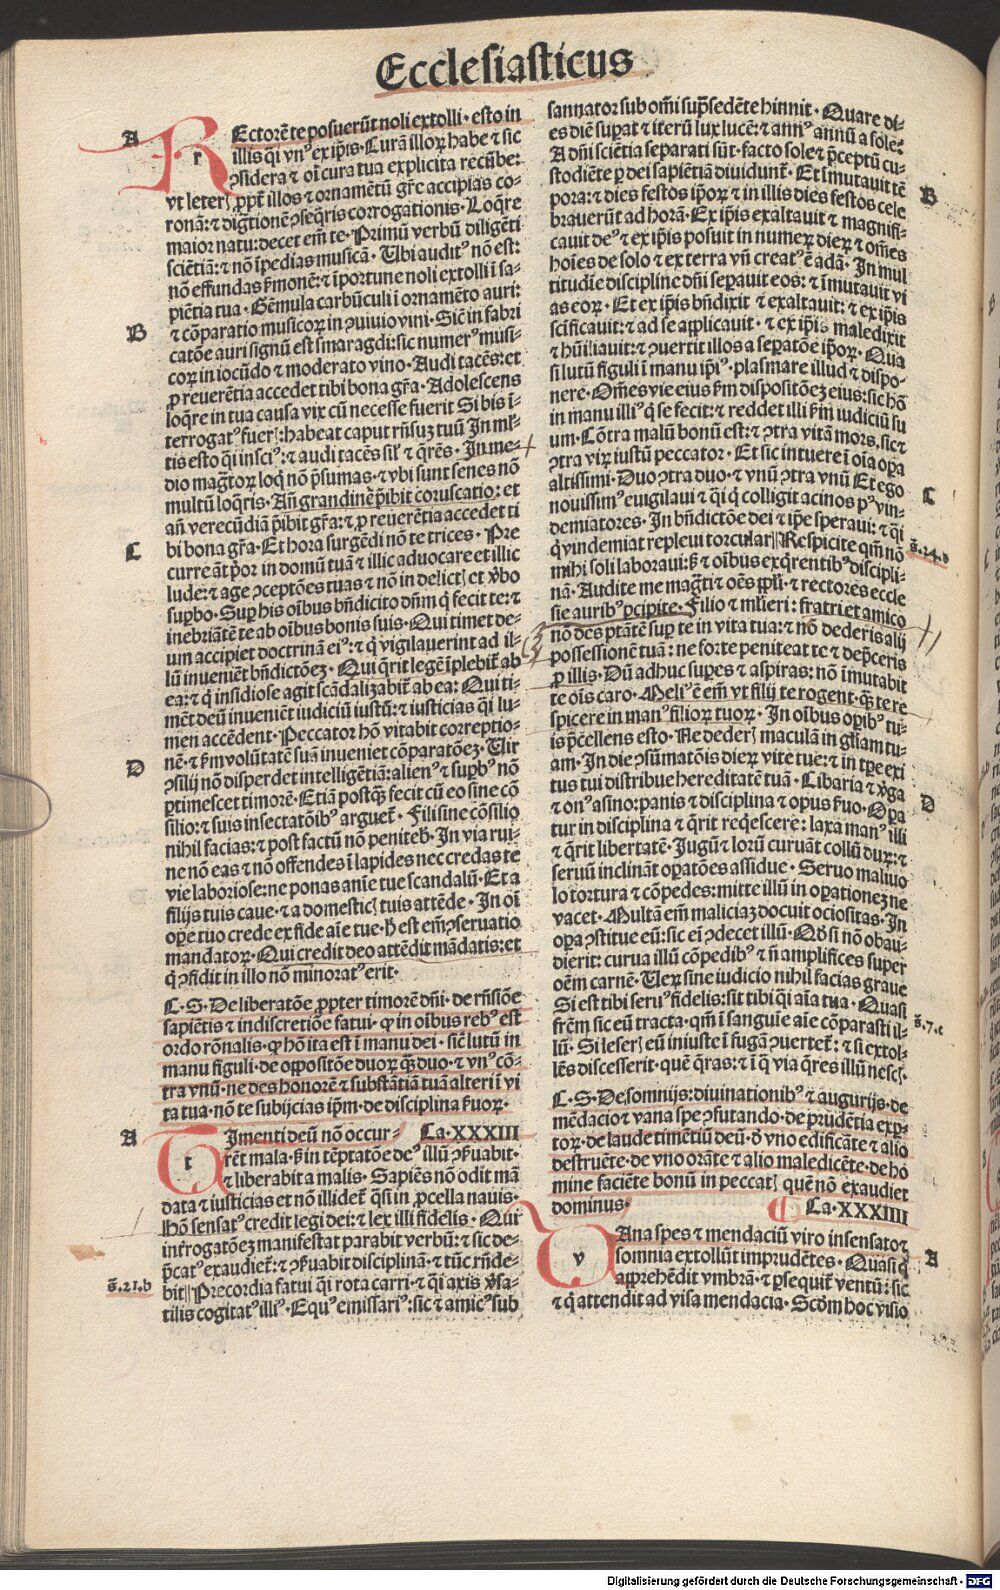 Ecclesiasticus
A
Rectorē te posuerūt noli extolli· esto in
illis q̄i vn⁹ ex ip̄is· Curā illoꝝ habe ⁊ sic
ꝯsidera ⁊ oī cura tua explicita recūbe:
vt leteꝛ ꝓpt̄ illos ⁊ ornamētū gr̄e accipias co-
ronā: ⁊ diḡtionē ꝯseq̄ris corrogationis· Loq̄re
maior natu: decet em̄ te· Primū verbū diligēti
sciētiā: ⁊ nō īpedias musicā· Ubi audit⁹ nō est:
nō effundas ẜmonē: ⁊ īportune noli extolli ī sa-
piētia tua· Gēmula carbūculi ī ornamēto auri:
B
⁊ cōparatio musicoꝝ in ꝯuiuio vini· Sic̄ in fabri
catōe auri signū est smaragdi: sic numer⁹ musi-
coꝝ in iocūdo ⁊ moderato vino· Audi tacēs: et
ꝓ reuerētia accedet tibi bona gr̄a· Adolescens
loq̄re in tua causa vix cū necesse fuerit Si bis ī-
terrogat⁹ fueꝛ: habeat caput rn̄suꝫ tuū In ml̄-
tis esto q̄i insci⁹: ⁊ audi tacēs sil̄ ⁊ q̄rēs· In me-
dio mag̅toꝝ loq̄ nō p̄sumas· ⁊ vbi sunt senes nō
multū loq̄ris· Ān̄ grandinē p̄ibit coruscatio: et
an̄ verecūdiā p̄ibit gr̄a: ⁊ ꝓ reuerētia accedet ti
C
bi bona gr̄a· Et hora surgēdi nō te trices· Pre
curre āt p̄or in domū tuā ⁊ illic aduocare et illic
lude: ⁊ age ꝯceptōes tuas ⁊ nō in delictꝭ et v̄bo
suꝑbo· Suꝑ his oībus bn̄dicito dn̄m q̄ fecit te: ⁊
inebriātē te ab oībus bonis suis· Qui timet de-
um accipiet doctrinā ei⁹: ⁊ q̄ vigilauerint ad il-
lū inueniēt bn̄dictōeꝫ· Qui q̄rit legē īplebit̄ ab
ea: ⁊ q̄ insidiose agit scādalizabit̄ ab ea: Qui ti-
mēt deū inueniēt iudiciū iustū: ⁊ iusticias q̄i lu-
men accēdent· Peccator hō vitabit correptio-
nē· ⁊ ẜm volūtatē suā inueniet cōparatōeꝫ· Uir
D
ꝯsilij nō disperdet intelligētiā: alien⁹ ⁊ suꝑb⁹ nō
ꝑtimescet timorē· Etiā postq̄ꝫ fecit cū eo sine cō
silio: ⁊ suis insectatōib⁹ arguet̄· Fili sine cōsilio
nihil facias: ⁊ post factū nō peniteb̄· In via rui-
ne nō eas ⁊ nō offendes ī lapides nec credas te
vie laboriose: ne ponas aīe tue scandalū· Et a
filijs tuis caue· ⁊ a domesticꝭ tuis attēde· In oī
oꝑe tuo crede ex fide aīe tue· h̄ est em̄ ꝯseruatio
mandatoꝝ· Qui credit deo attēdit mādatis: et
q̄ ꝯfidit in illo nō minorat⁹ erit·
C· S· De liberatōe ꝓpter timorē dn̄i· de rn̄siōe
sapiētis ⁊ indiscretiōe fatui· ꝙ in oībus reb⁹ est
ordo rōnalis· ꝙ hō ita est ī manu dei· sic̄ lutū in
manu figuli· de oppositōe duoꝝ q̄ꝫ duo· ⁊ vn⁹ cō-
tra vnū· ne des honorē ⁊ substātiā tuā alteri ī vi
ta tua· nō te subijcias ip̄m· de disciplina ẜuoꝝ·
A
Timenti deū nō occur- Ca· XXXIII
rēt mala· ẜ in tēptatōe de⁹ illū ꝯẜuabit·
⁊ liberabit a malis· Sapiēs nō odit mā
data ⁊ iusticias et nō illidet̄ q̄si in ꝓcella nauis·
Hō sensat⁹ credit legi dei: ⁊ lex illi fidelis· Qui
int̄rogatōeꝫ manifestat parabit verbū: ⁊ sic de-
p̄cat⁹ exaudiet̄: ⁊ ꝯẜuabit disciplinā· ⁊ tūc rn̄de-
bit|| Precordia fatui q̄i rota carri· ⁊ q̄i axis v̄sa-
s̄.21.b
tilis cogitat⁹ illi⁹· Equ⁹ emissari⁹: sic ⁊ amic⁹ sub
sannator sub om̄i sup̄sedēte hinnit· Quare di-
es diē suꝑat ⁊ iterū lux lucē: ⁊ ann⁹ annū a sole·
A dn̄i sciētia separati sūt· facto sole ⁊ p̄ceptū cu-
stodiēte ꝑ dei sapiētiā diuidunt̄· Et īmutauit tē
B
pora: ⁊ dies festos ip̄oꝝ ⁊ in illis dies festos cele
brauerūt ad horā· Ex ip̄is exaltauit ⁊ magnifi-
cauit de⁹ ⁊ ex ip̄is posuit in numeꝝ dieꝝ ⁊ om̄es
hoīes de solo ⁊ ex terra vn̄ creat⁹ ē adā· In mul
titudīe discipline dn̄i seꝑauit eos: ⁊ īmutauit vi
as eoꝝ· Et ex ip̄is bn̄dixit ⁊ exaltauit: ⁊ ex ip̄is
scificauit: ⁊ ad se applicauit· ⁊ ex ip̄is maledixit
⁊ hūiliauit: ⁊ ꝯuertit illos a seꝑatōe ip̄oꝝ· Qua
si lutū figuli ī manu ip̄i⁹· plasmare illud ⁊ dispo-
nere· Om̄es vie eius ẜm dispositōeꝫ eius: sic hō
in manu illi⁹ q̄ se fecit: ⁊ reddet illi ẜm iudiciū su
um· Cōtra malū bonū est: ⁊ ꝯtra vitā mors· sic ⁊
ꝯtra viꝝ iustū peccator· Et sic intuere ī oīa oꝑa
altissimi· Duo ꝯtra duo· ⁊ vnū ꝯtra vnū Et ego
C
nouissim⁹ euigilaui ⁊ q̄i q̄ colligit acinos p⁹ vin-
demiatores· In bn̄dictōe dei ⁊ ip̄e speraui: ⁊ q̄i
q̄ vindemiat repleui torcular|| Respicite qm̄ nō
s̄.24.d
mihi soli laboraui: ẜ ⁊ oībus exq̄rentib⁹ discipli-
nā· Audite me mag̅ti ⁊ oēs pp̄li· ⁊ rectores eccle
sie aurib⁹ ꝑcipite· Filio ⁊ ml̄ieri: fratri et amico
nō des ptātē suꝑ te in vita tua: ⁊ nō dederis alij
possessionē tuā: ne forte peniteat te ⁊ dep̄ceris
ꝓ illis· Dū adhuc suꝑes ⁊ aspiras: nō īmutabit
te oīs caro· Meli⁹ ē em̄ vt filij te rogent· q̄ꝫ te re
spicere in man⁹ filioꝝ tuoꝝ· In oībus oꝑib⁹ tu-
is p̄cellens esto· Ne dederꝭ maculā in gl̄iam tu-
am· In die ꝯsūmatōis dieꝝ vite tue: ⁊ in tꝑe exi
tus tui distribue hereditatē tuā· Cibaria ⁊ v̄ga
D
⁊ on⁹ asino: panis ⁊ disciplina ⁊ opus ẜuo· Oꝑa
tur in disciplina ⁊ q̄rit reqescere: laxa man⁹ illi
⁊ q̄rit libertatē· Jugū ⁊ lorū curuāt collū duꝝ: ⁊
seruū inclināt oꝑatōes assidue· Seruo maliuo
lo tortura ⁊ cōpedes: mitte illū in oꝑationeꝫ ne
vacet· Multā em̄ maliciaꝫ docuit ociositas· In
oꝑa ꝯstitue eū: sic ei̅ ꝯdecet illū· Qđ si nō obau-
dierit: curua illū cōpedib⁹ ⁊ n̄ amplifices super
oēm carnē· Ueꝝ sine iudicio nihil facias graue
Si est tibi seru⁹ fidelis: sit tibi q̄i aīa tua· Quasi
frēm sic eū tracta· qm̄ ī sanguīe aīe cōparasti il-
s̄.7.c
lū· Si leserꝭ eū iniuste ī fugā ꝯuertet̄: ⁊ si extol-
lēs discesserit· que q̄ras: ⁊ ī q̄ via q̄res illū nescꝭ·
C· S· De somnijs: diuinationib⁹ ⁊ augurijs· de
mēdacio ⁊ vana spe ꝯfutando· de prudētia exꝑ-
toꝝ· de laude timētiū deū· d̄ vno edificāte ⁊ alio
destruēte· de vno orāte ⁊ alio maledicēte· de ho
mine faciēte bonū in peccatꝭ quē nō exaudiet
dominus· Ca· XXXIIII
A
Uana spes ⁊ mendaciū viro insensato ⁊
somnia extollūt imprudētes· Quasi q̄
apprehēdit vmbrā· ⁊ ꝑsequit̄ ventū: sic
⁊ q̄ attendit ad visa mendacia· Scd̄m hoc visio
Digitalisierung gefördert durch die Deutsche Forschungsgemeinschaft - DFG